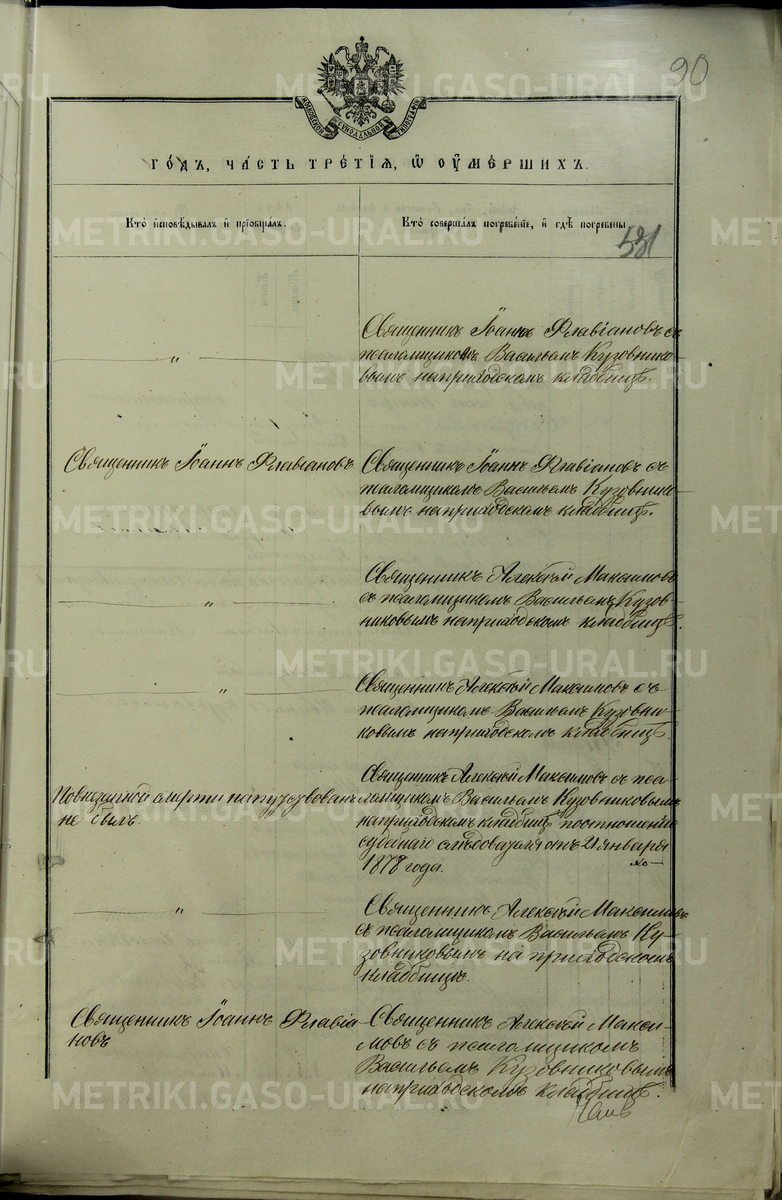 90
МОСКОВСКОЙ СѴНОДАЛЬНОЙ ТИПОГРАФІИ
ГОДЪ, ЧАСТЬ ТРЕТІЯ, Ѡ ОУМЕРШИХЪ.
Кто исповѣдывалъ и пріобщалъ.
Кто совершалъ погребеніе, и гдѣ погребены.
531
Священникъ Іоаннъ Флавіановъ съ
псаломщикомъ Васильемъ Кузовнико-
„
вымъ на приходскомъ кладбищѣ.
Священникъ Іоаннъ Флавіановъ
Священникъ Іоаннъ Флавіановъ съ
псаломщикомъ Васильемъ Кузовнико-
вымъ на приходскомъ кладбищѣ.
„
Священникъ Алексѣй Максимовъ
съ псаломщикомъ Васильемъ Кузов-
никовымъ на приходскомъ кладбищѣ.
„
Священникъ Алексѣй Максимовъ съ
псаломщикомъ Васильемъ Кузовни-
ковымъ на приходскомъ кладбищѣ.
По внезапной смерти напутствованъ
не былъ
Священникъ Алексѣй Максимовъ съ пса-
ломщикомъ Васильемъ Кузовниковымъ
на приходскомъ кладбищѣ по отношенію
судебнаго слѣдователя отъ 21 января
1878 года.
„
Священникъ Алексѣй Максимовъ
съ псаломщикомъ Васильемъ Ку-
зовниковымъ на приходскомъ
кладбищѣ.
Священникъ Іоаннъ Флавіа-
новъ
Священникъ Алексѣй Макси-
мовъ съ псаломщикомъ
Васильемъ Кузовниковымъ
на приходскомъ кладбищѣ.
METRIKI.GASO-URAL.RU